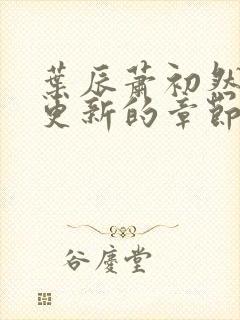 葉辰蕭初然
更新的章節
谷慶堂